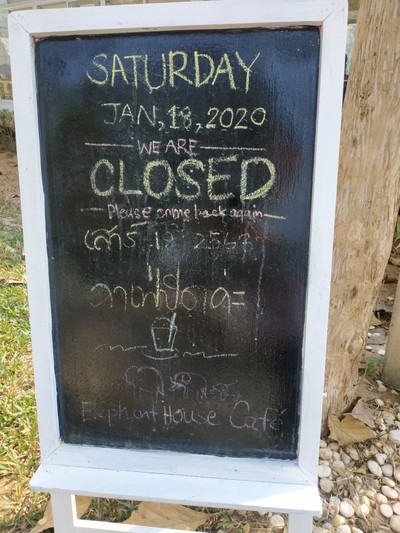 SATURDAY
JAN, 18, 2020
WE ARE
CLOSED
Please come back again
เสาร์ 18 2563
Elephant House Café